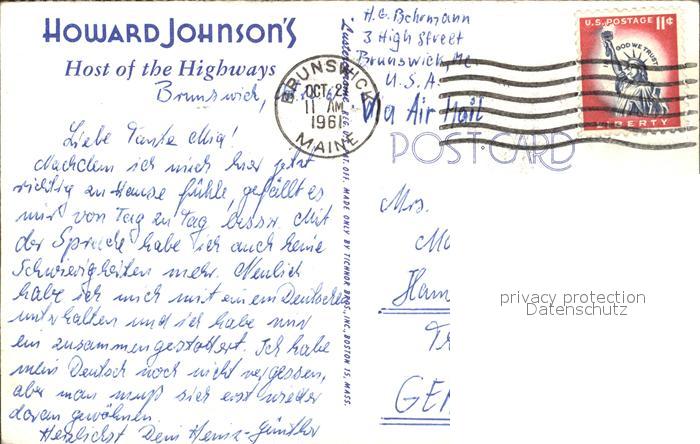 HOWARD JOHNSON'S
Host of the Highways
Brunswick,
Liebe Tante Mia!
Nachdem ich mich hier jetzt
richtig zu Hause fühle, gefällt es
mir von Tag zu Tag besser. Mit
der Sprache habe ich auch keine
Schwierigkeiten mehr. Neulich
habe ich mich mit einem Deutschen
unterhalten und ich habe nur
ein zusammengestottert. Ich habe
mein Deutsch noch nicht vergessen,
aber man muß sich erst wieder
daran gewöhnen.
Herzlichst Dein Heinz-Günther
BRUNSWICK
OCT 2
11 AM
1961
MAINE
MADE ONLY BY TICHNOR BROS., INC. BOSTON 15, MASS.
H.G. Behrmann
3 High Street
Brunswick, Me
U.S.A.
Via Air Mail
U.S. POSTAGE 11¢
IN GOD WE TRUST
LIBERTY
POST CARD
Mrs.
Ham
GE
privacy protection
Datenschutz